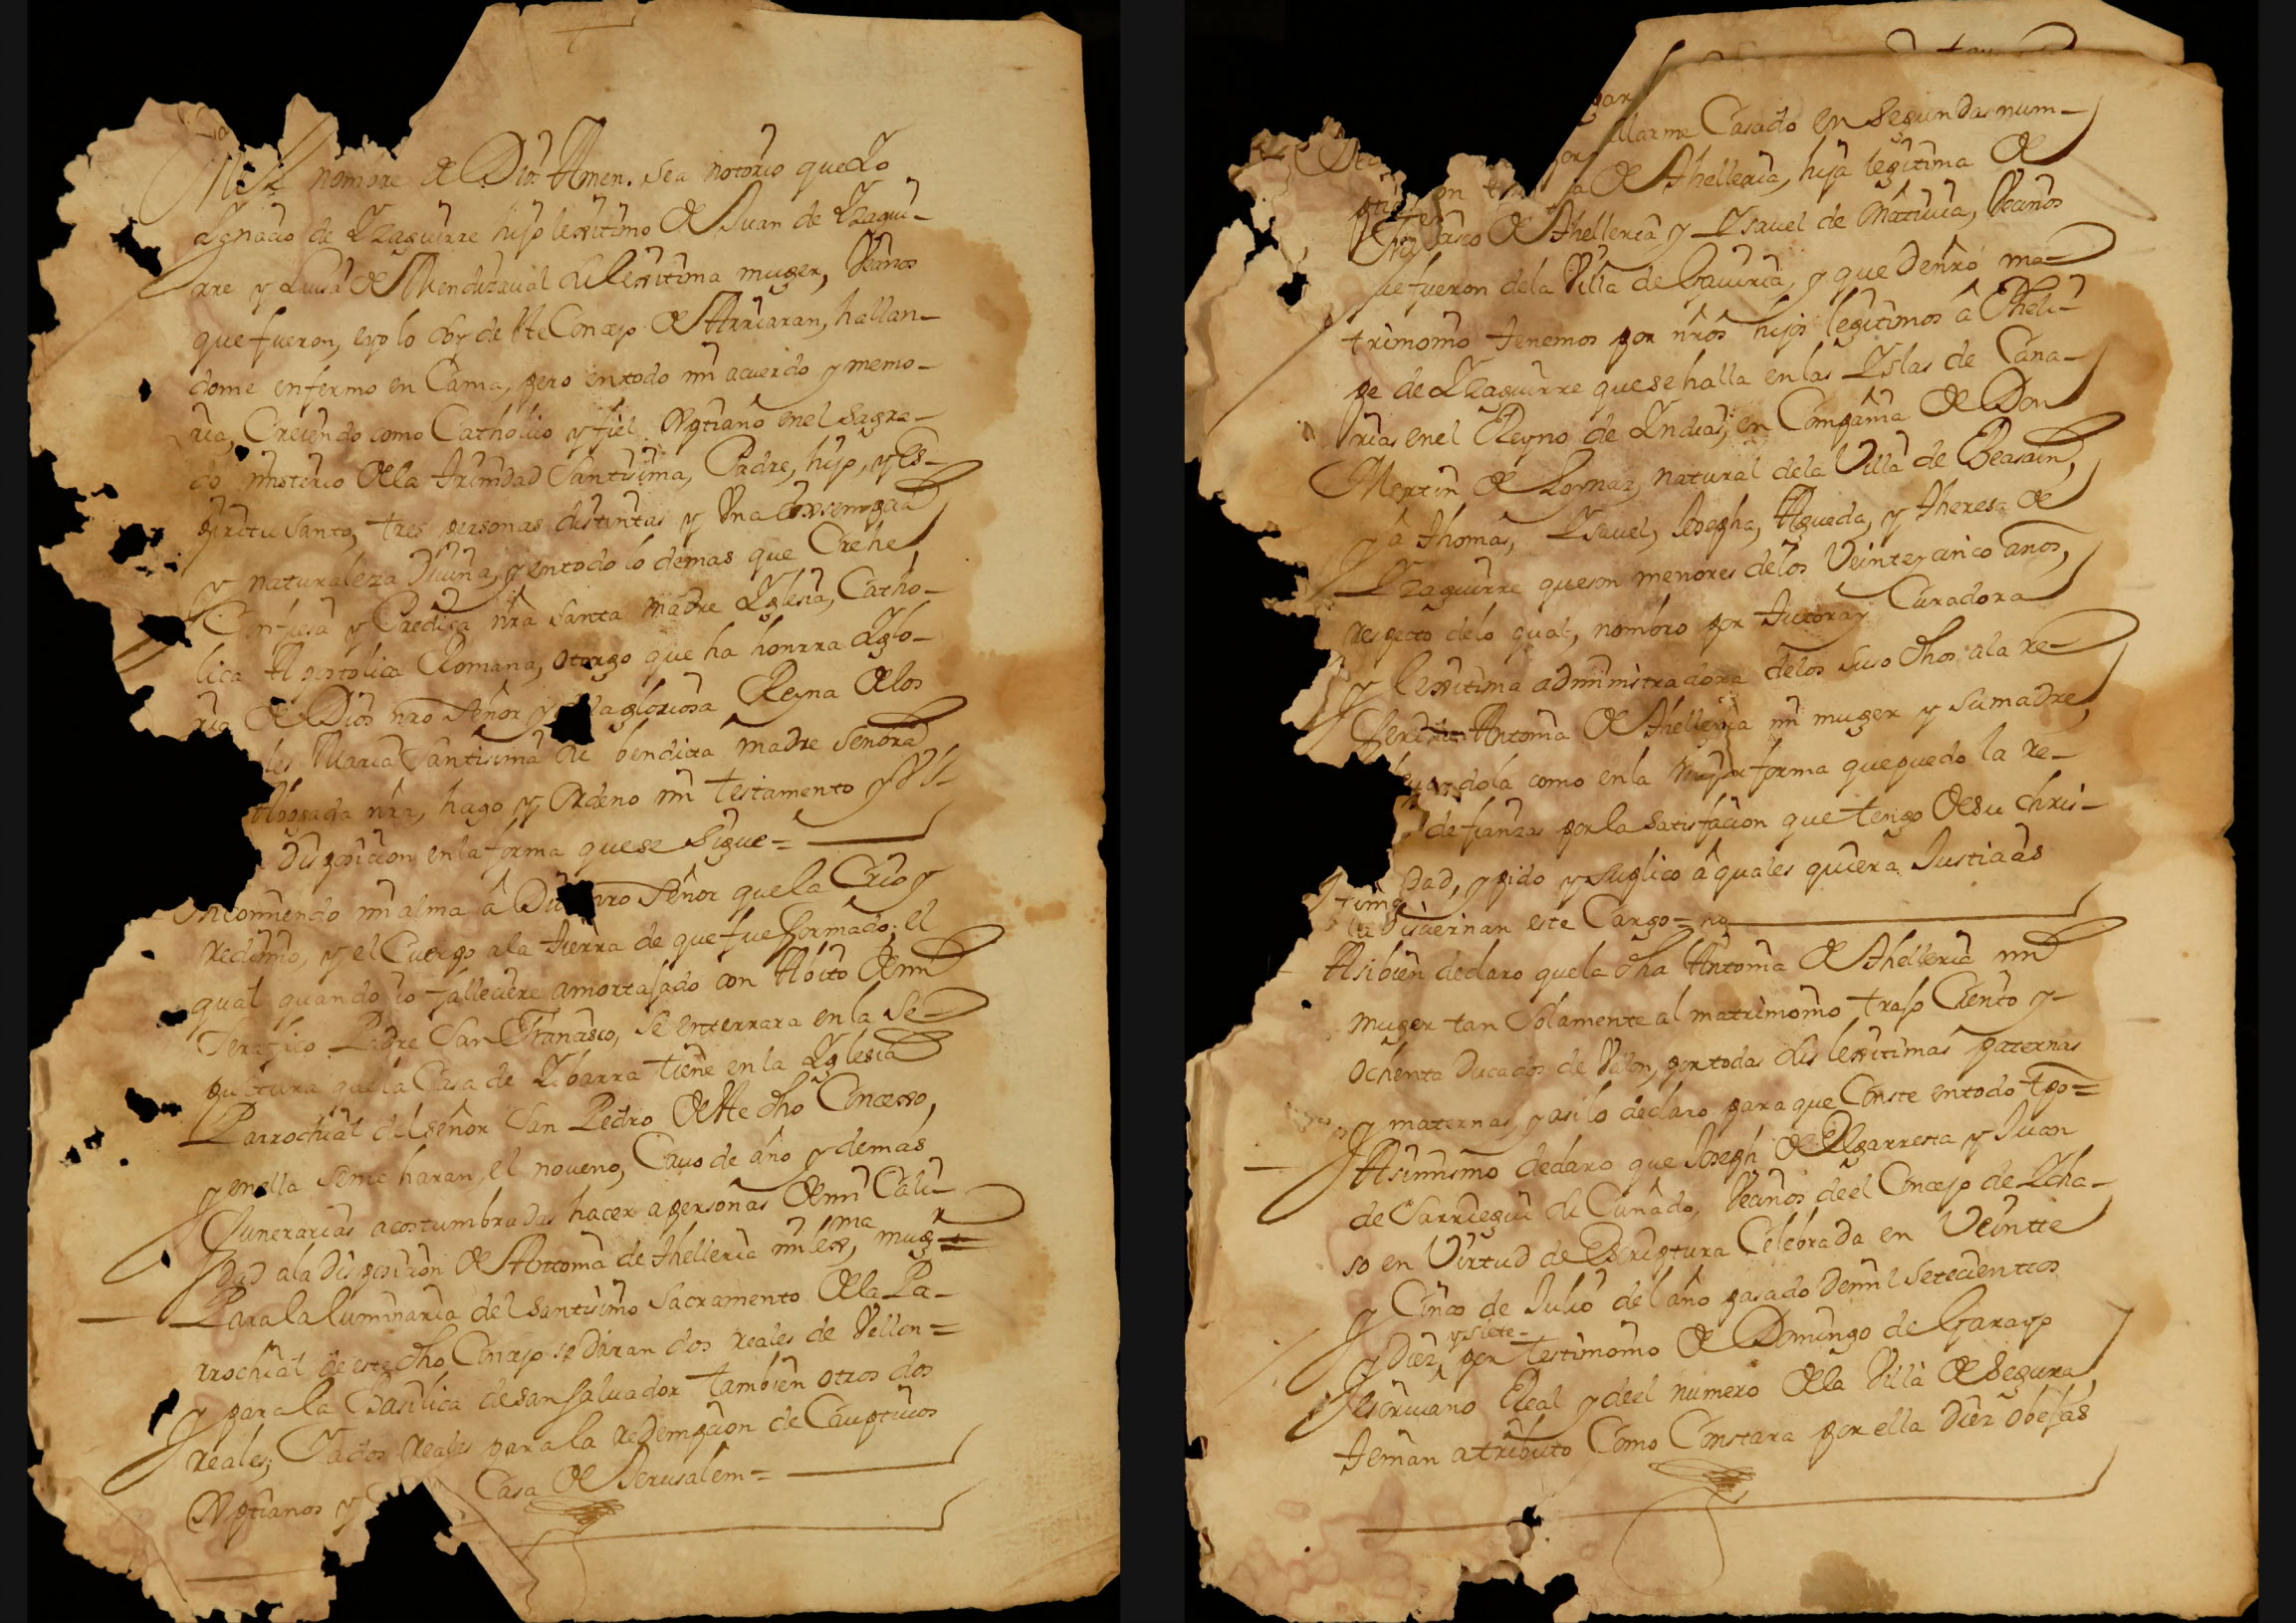 En el nombre de Dios Amen. sea notorio que Yo
Ygnacio de Yzaguirre hijo lexitimo de Juan de Yzagui-
rre y Luisa de Mendizaual su lexitima muger, Vecinos
que fueron, e yo lo soy de este Concejo de Arriaran, hallan-
dome enfermo en Cama, pero en todo mi acuerdo y memo-
ria, Creiendo como Catholico y fiel Xptiano en el Sagra-
do misterio de la trinidad Santisima, Padre, hijo, y Es-
piritu Santo, tres personas distintas y Vna
y naturaleza Diuina, y entodo lo demas que Crehe,
Confiesa y Predica nra santa Madre Yglesia, Catho-
lica Apostolica Romana, otorgo que ha honrra Yglo-
ria de Dios nro Señor y de la gloriosa Reyna de los
les Maria Santisima su bendita madre señora
Abogada nra, hago y Ordeno mi testamento y Vl-
Disposicion en la forma que se Sigue =
Encomiendo mi alma â Dios nro Señor que la Crio y
redimio, y el Cuerpo ala tierra de que fue formado; el
qual quando io falleciere amortajado con Abito de mi
Serafico Padre San Francisco, se enterrara en la Se-
pultura que la Casa de Ybarra tiene en la Yglesia
Parrochial del señor San Pedro de este dho Concexo,
y en ella seme haran, el noueno, Cauo de año y demas
funerarias acostumbradas hacer a personas de mi Cali-
dad ala disposicion de Antonia de thelleria mi lexma, mugr =
Para la luminaria del Santisimo Sacramento de la Pa-
rrochial de este dho Concejo se daran dos reales de Vellon =
y para la Basilica de san Saluador tambien otros dos
reales; Yados reales para la redempcion de Cauptiuos
Xptianos y Casa de Jerusalem =
llarme Casado en segundas num-
a de thelleria, hija legitima de
asco de thelleria y Ysauel de Matiuia, Vecinos
que fueron dela Villa de Gauiria, y que de nro ma-
trimonio tenemos por nros hijos legitimos â Pheli-
pe de Yzaguirre que se halla en las Yslas de Cana-
rias en el Reyno de Yndias, en Compañia de Don
Martin de Loynaz, natural dela Villa de Beasain,
y â thomas, Ysauel, Josepha, Agueda, y theresa de
Yzaguirre que son menores delos Veinteycinco años,
respecto delo qual, nombro por tutora y Curadora
y lexitima administradora delos suso dhos ala re-
feri Antonia de thelleria mi muger y su madre,
dola como en la mejor forma que puedo la re-
de fianzas por la satisfacion que tengo de su chris-
dad, y pido y suplico â quales quiera Justicias
la Disciernan este Cargo =
Asibien declaro que la dha Antonia de thelleria mi
muger tan Solamente al matrimonio trajo Ciento y
ochenta Ducados de Vellon, por todas sus lexitimas paternas
y maternas, y asi lo declaro para que Conste en todo tpo =
Asimismo declaro que Joseph de Elgarresta y Juan
de Sarriegui su Cuñado, Vecinos de el Concejo de Ycha-
so en Virtud de Escriptura Celebrada en Veintte
y Cinco de Julio del año pasado de mil Setecienttos
y Diez, y Siete- por testimonio de Domingo de Garayo
escriuano Real y de el numero de la Villa de Segura,
tenian a tributo Como Constara por ella Diez obejas